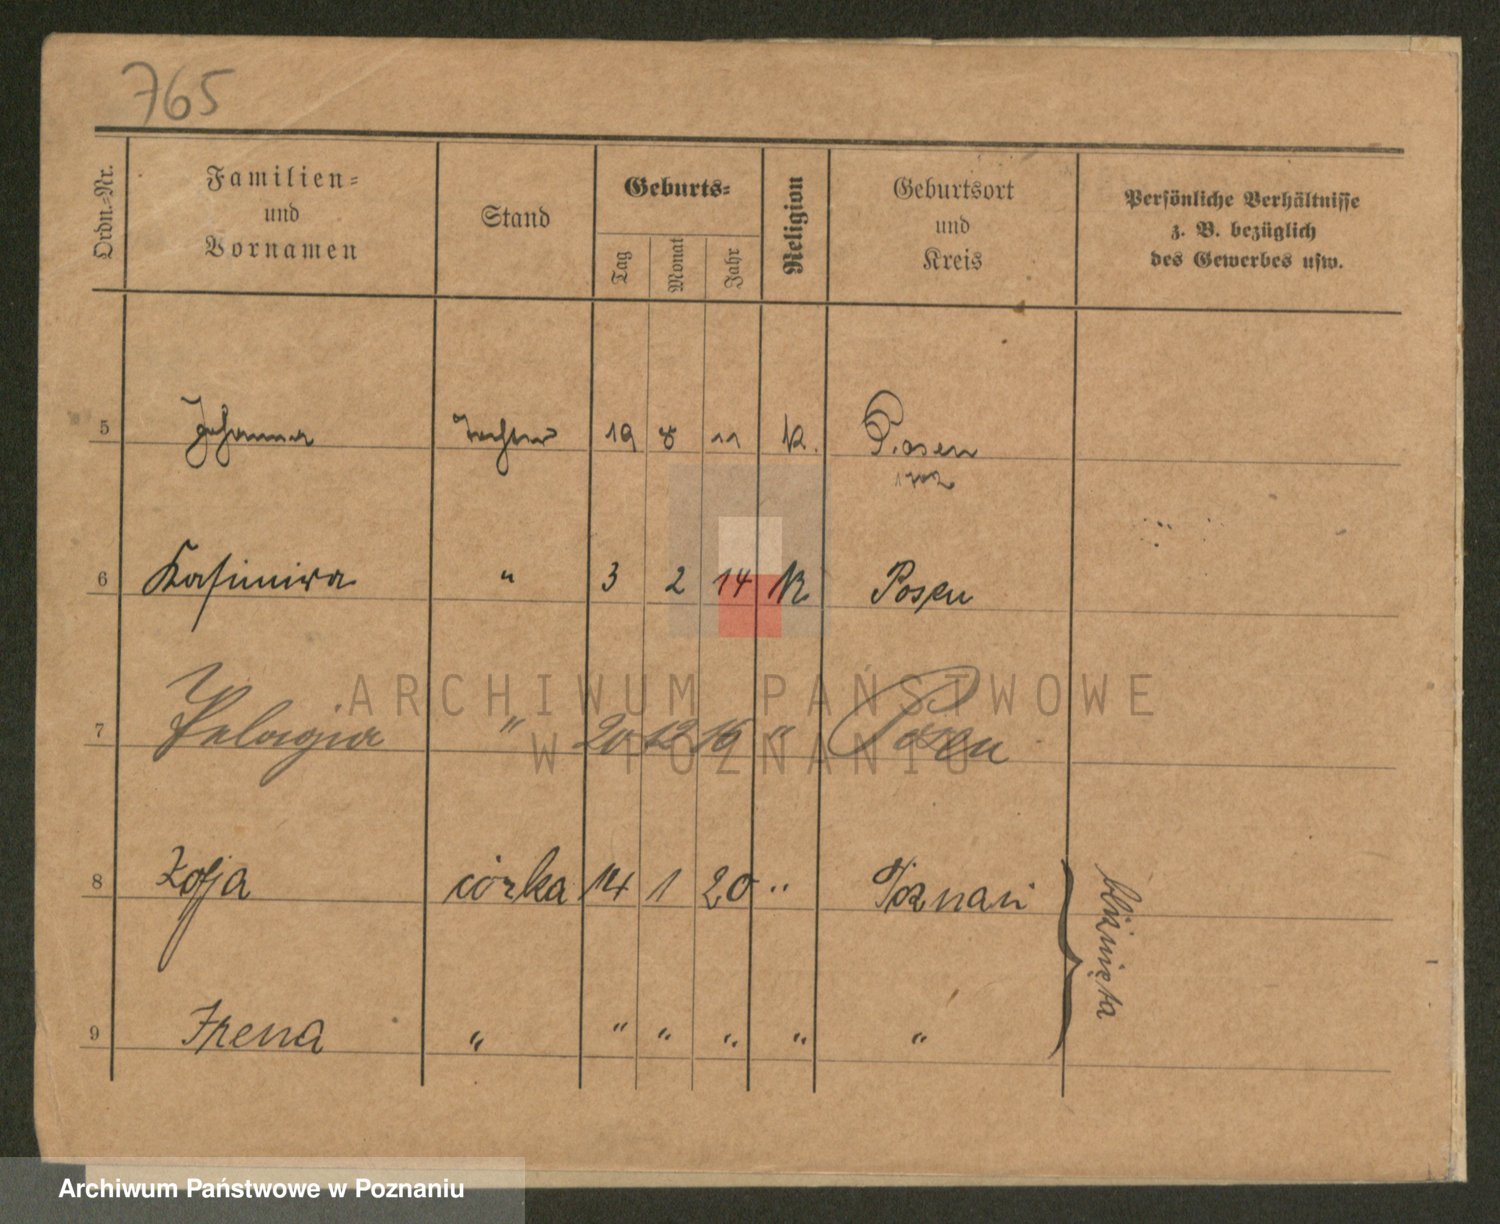 765
Ordn.-Nr.
Familien-
und
Vornamen
Stand
Geburts-
Tag
Monat
Jahr
Religion
Geburtsort
und
Kreis
Persönliche Verhältnisse
z. B. bezüglich
des Gewerbes usw.
5 Johanna Tochter 19 8 11 K. Posen
6 Kasimira " 3 2 14 K Posen
ARCHIWUM PAŃSTWOWE
W POZNANIU
7 Pelagia " 20 12 16 " Posen
8 Zofja córka 14 1 20 " Poznań
bliźnięta
9 Irena " " " " " "
Archiwum Państwowe w Poznaniu